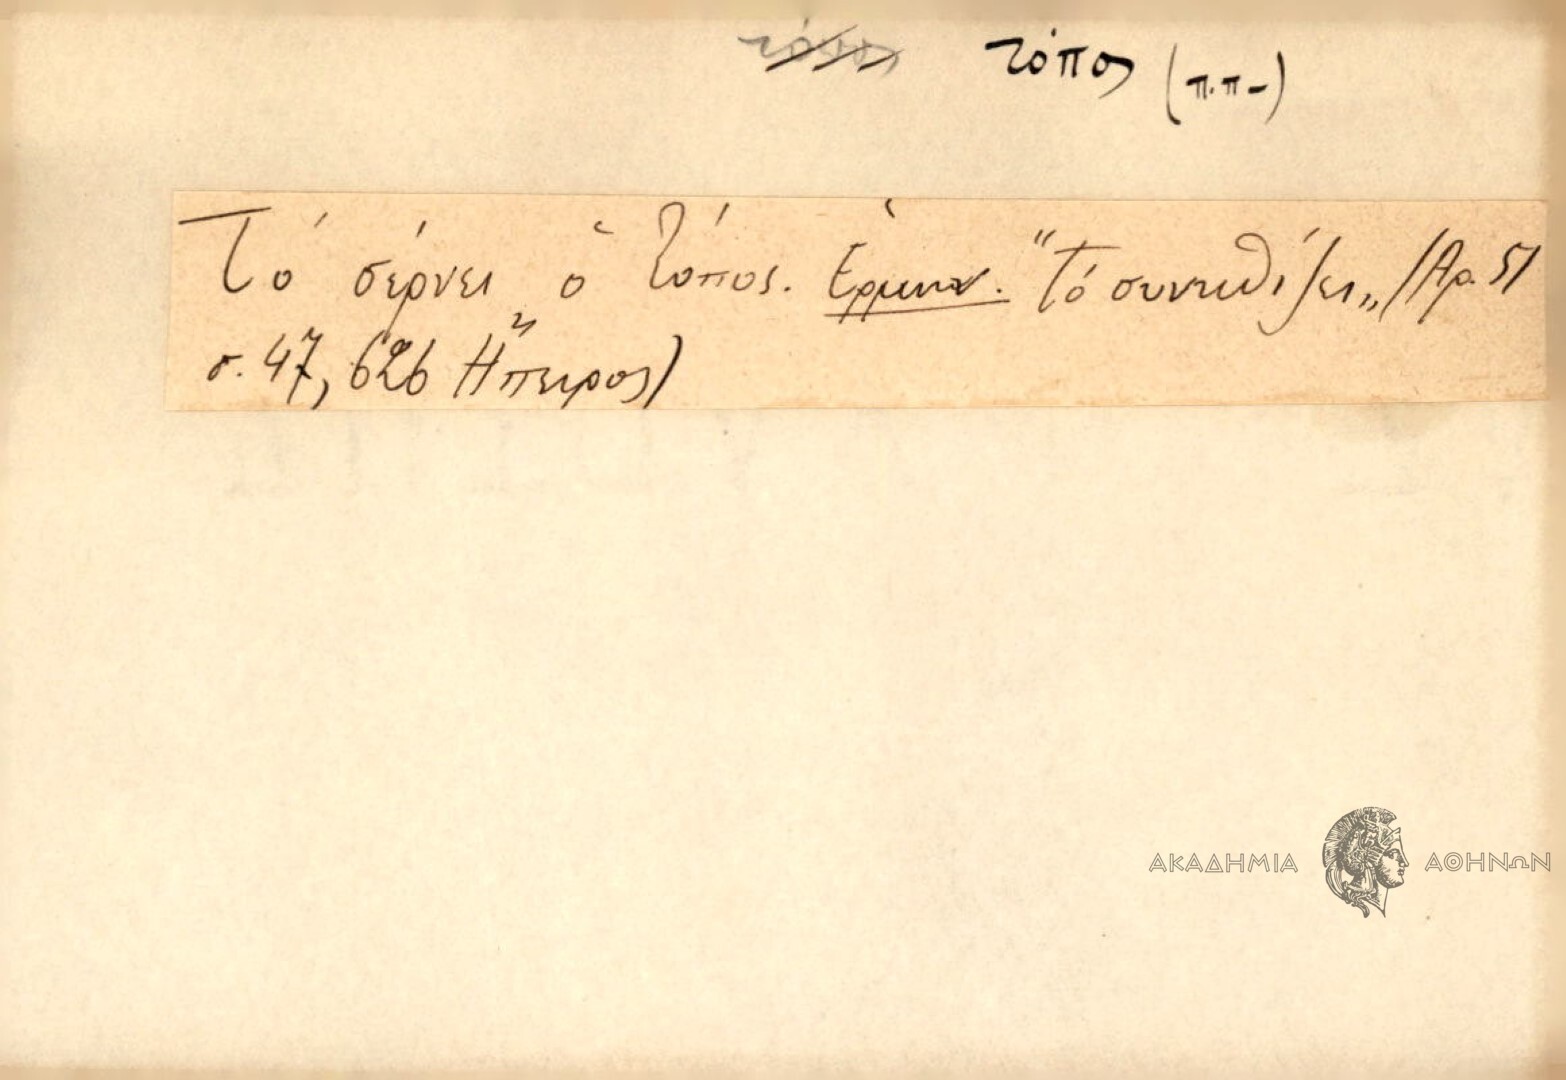 τόπος τόπος (π.π-)
Τό σέρνει ὁ τόπος. Ἑρμην. "Τό συνειθίζει„ (Ἀρ. 51
σ. 47, 626 Ἤπειρος)
ΑΚΑΔΗΜΙΑ ΑΘΗΝΩΝ